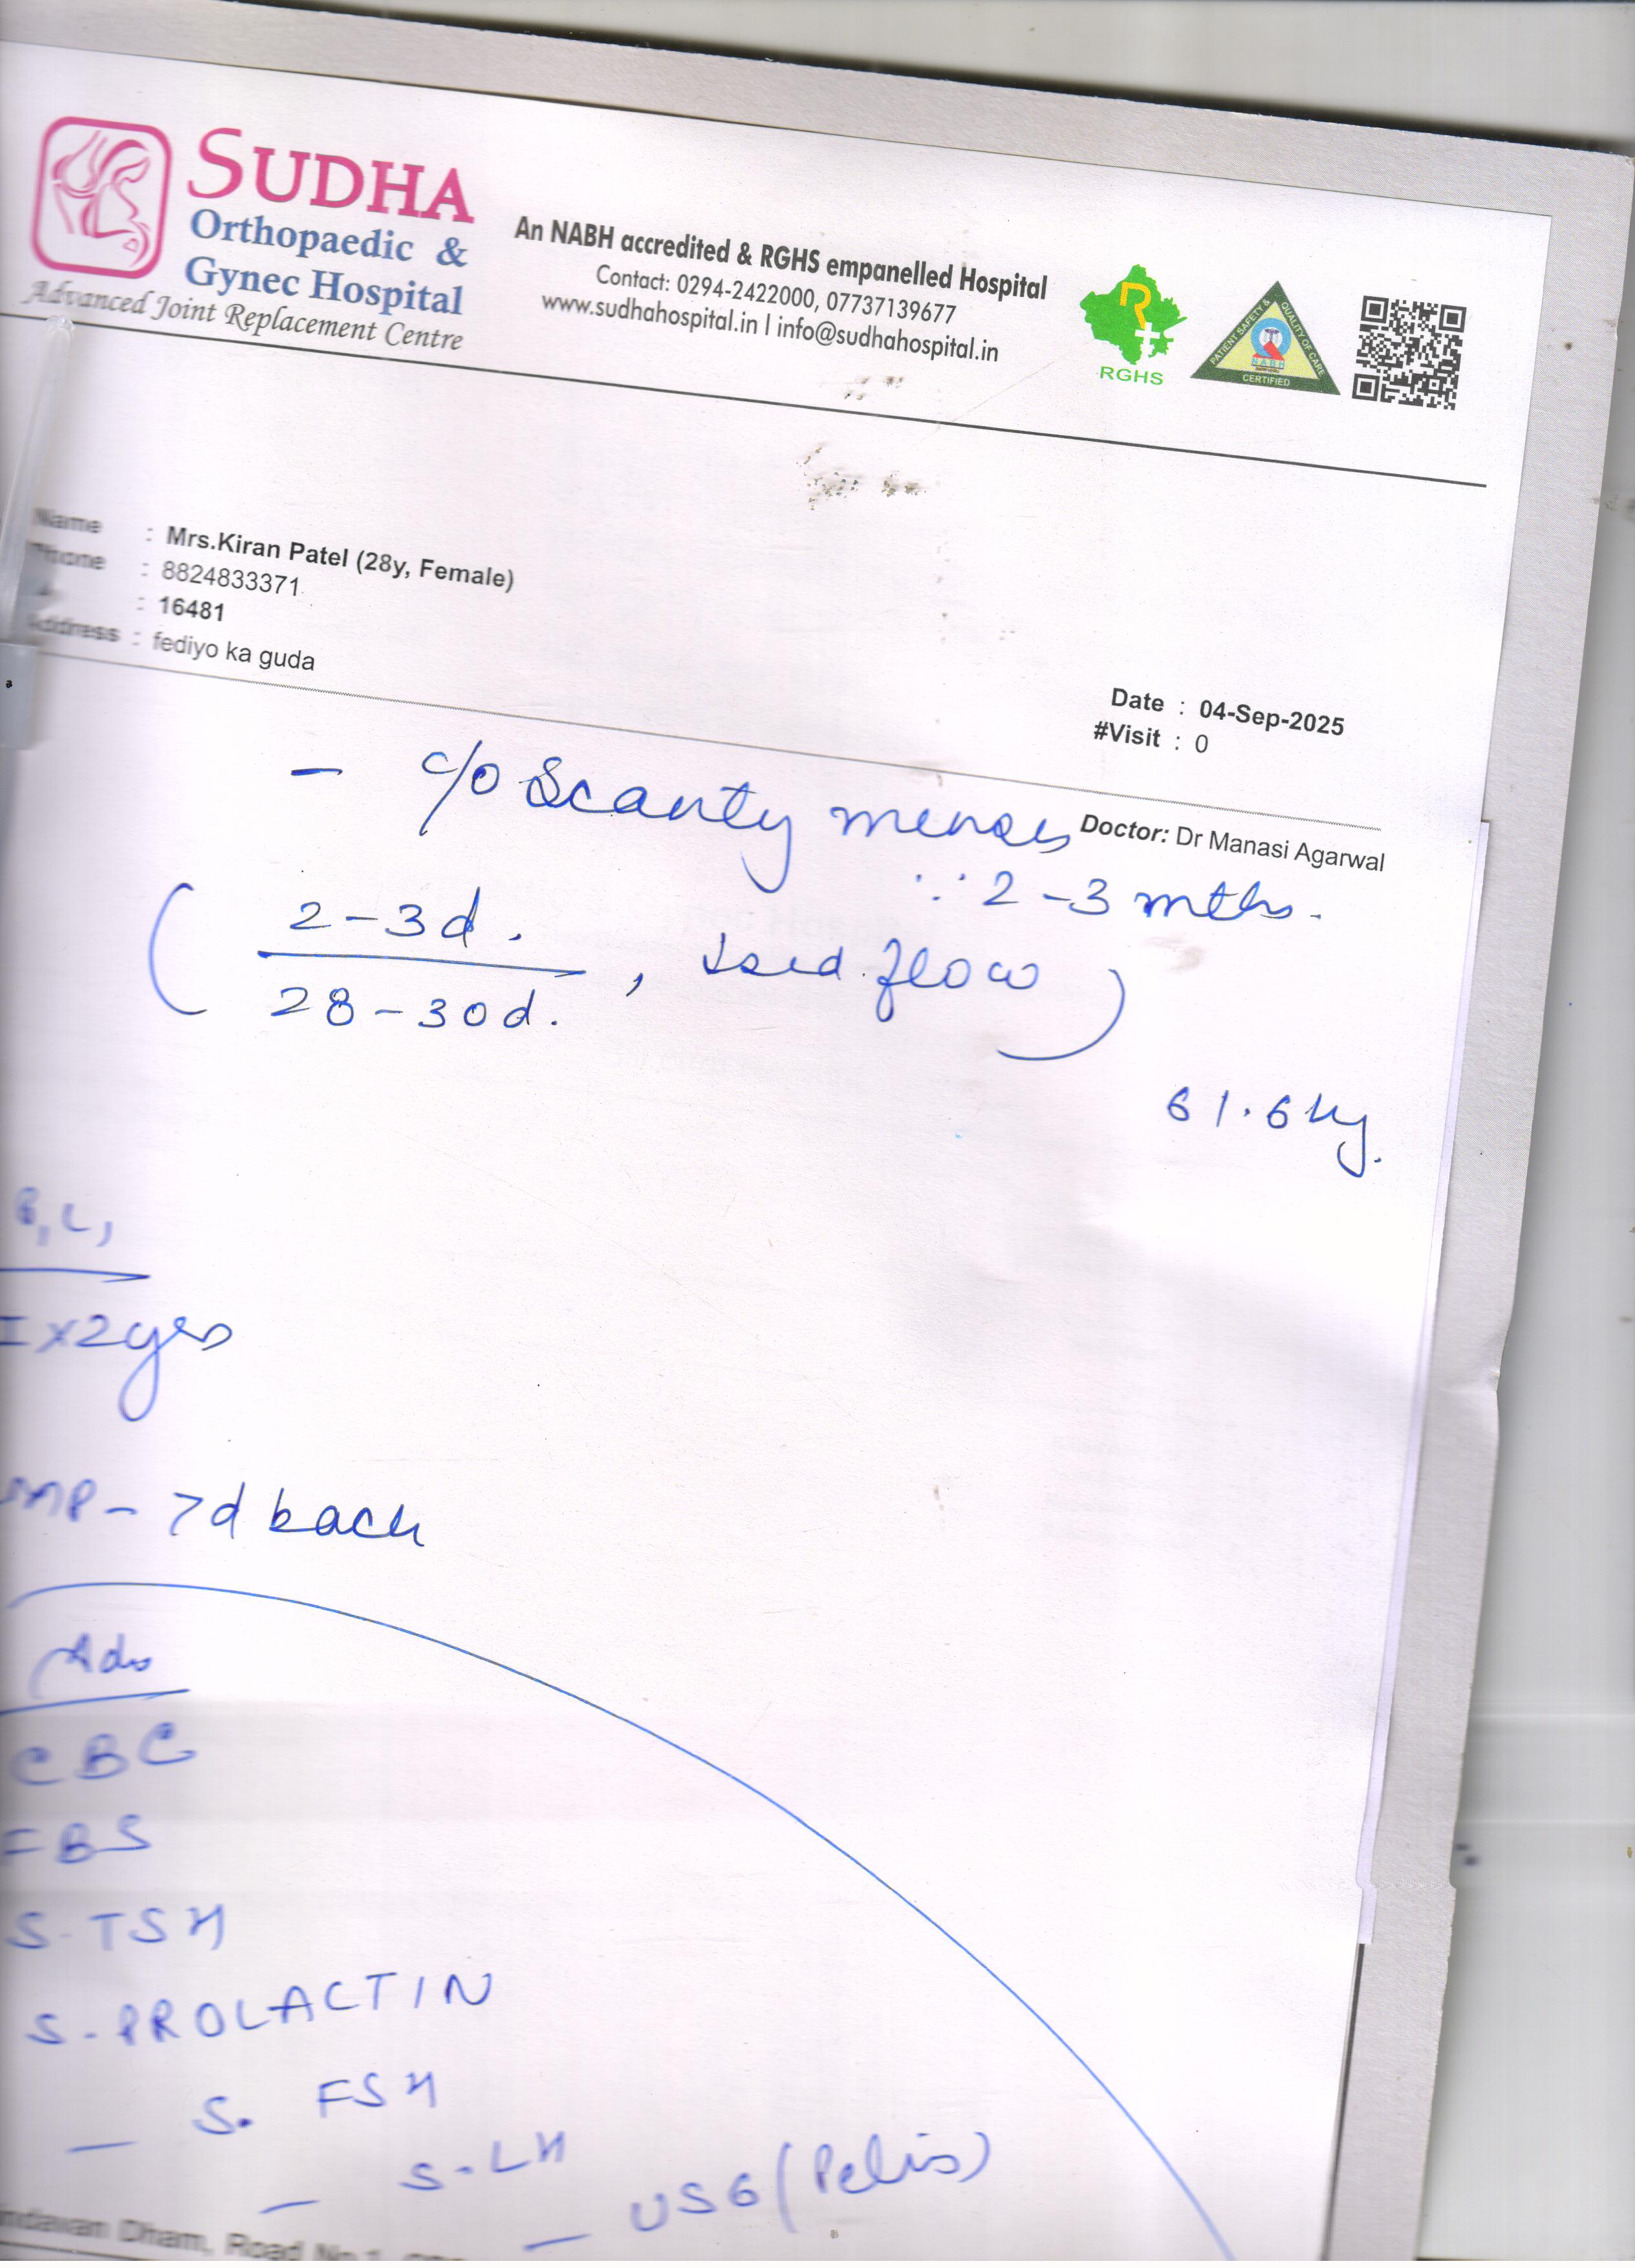 SUDHA
Orthopaedic &
Gynec Hospital
Advanced Joint Replacement Centre
An NABH accredited & RGHS empanelled Hospital
Contact: 0294-2422000, 07737139677
www.sudhahospital.in | info@sudhahospital.in
RGHS
PATIENT SAFETY & QUALITY OF CARE
NABH
CERTIFIED
Name : Mrs.Kiran Patel (28y, Female)
Phone : 8824833371
: 16481
Address : fediyo ka guda
Date : 04-Sep-2025
#Visit : 0
Doctor: Dr Manasi Agarwal
- c/o Scanty menses
∵ 2-3 mths.
( 2-3d.
28-30d. , flow )
61.6 kg.
, L,
I x 2yrs
MP - 7d back
Adv
CBC
FBS
S-TSH
S-PROLACTIN
- S. FSH
- S-LH
- USG (Pelvis)
ndavan Dham, Road No.1,